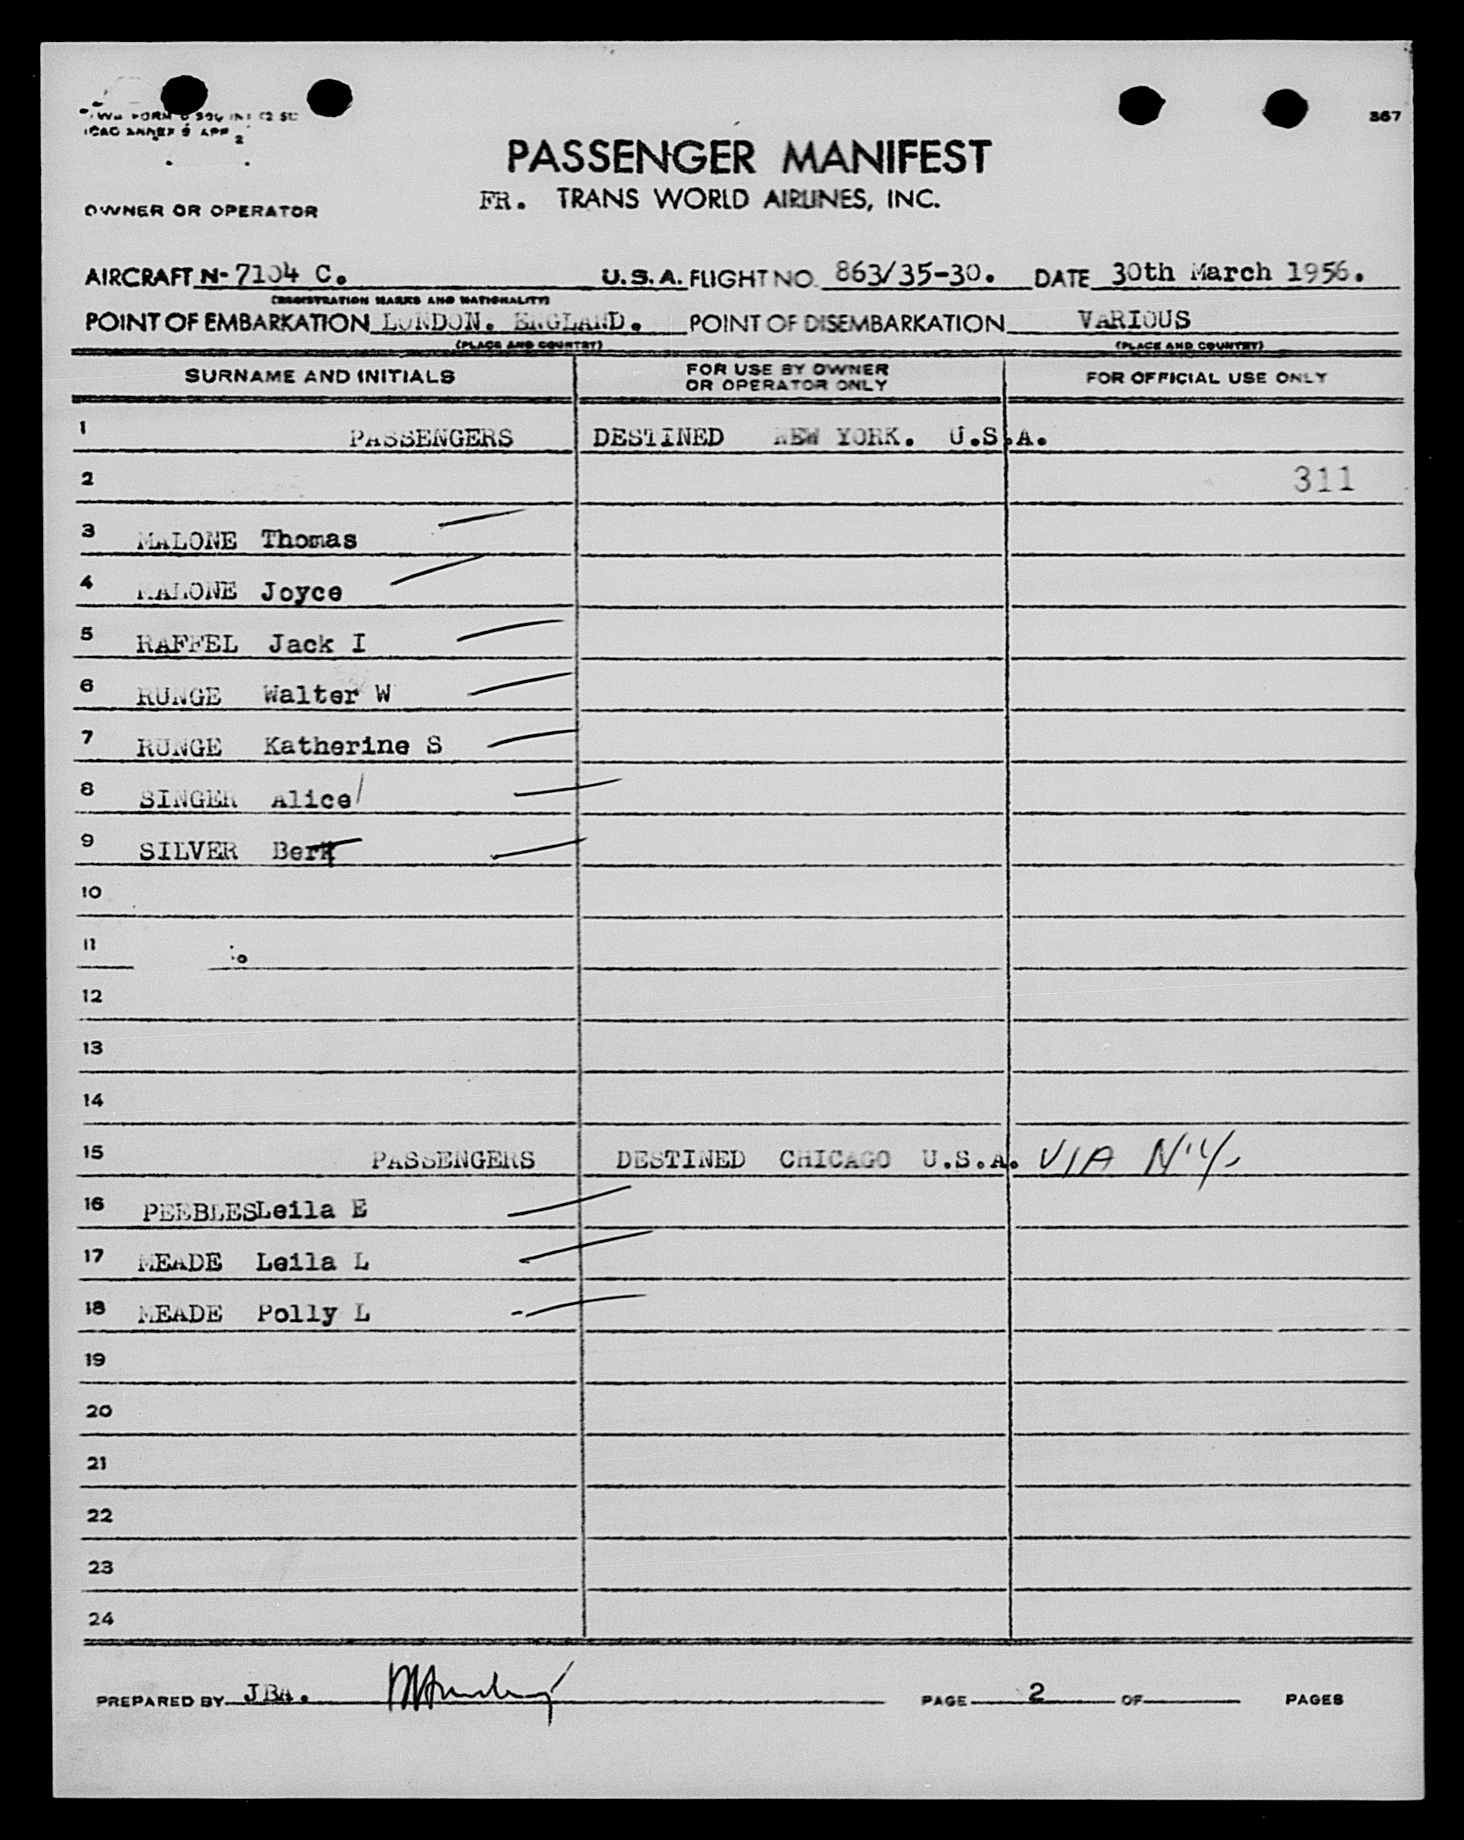 367
ICAO ANNEX 9 APP 2
PASSENGER MANIFEST
FR. TRANS WORLD AIRLINES, INC.
OWNER OR OPERATOR
AIRCRAFT N- 7104 C. U.S.A. FLIGHT NO. 863/35-30. DATE 30th March 1956.
(REGISTRATION MARKS AND NATIONALITY)
POINT OF EMBARKATION LONDON. ENGLAND. POINT OF DISEMBARKATION VARIOUS
(PLACE AND COUNTRY) (PLACE AND COUNTRY)
SURNAME AND INITIALS FOR USE BY OWNER OR OPERATOR ONLY FOR OFFICIAL USE ONLY
1 PASSENGERS DESTINED NEW YORK. U.S.A.
2 311
3 MALONE Thomas
4 MALONE Joyce
5 RAFFEL Jack I
6 RUNGE Walter W
7 RUNGE Katherine S
8 SINGER Alice
9 SILVER Bert
10
11
12
13
14
15 PASSENGERS DESTINED CHICAGO U.S.A. VIA N.Y.
16 PEEBLESLeila E
17 MEADE Leila L
18 MEADE Polly L
19
20
21
22
23
24
PREPARED BY JBA. PAGE 2 OF PAGES